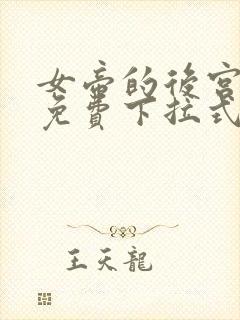 女帝的後宮
免費下拉式
王天龍